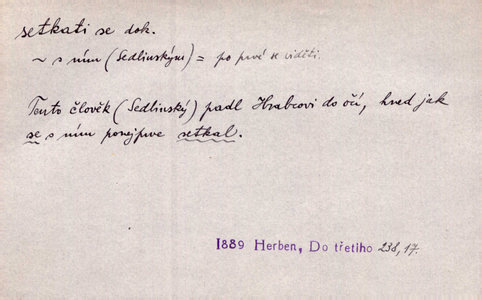 setkati se dok.
~ s ním (Sedlinským) = po prvé se viděti.
Tento člověk (Sedlinský) padl Hrabcovi do očí, hned jak
se s ním ponejprve setkal.
1889 Herben, Do třetiho 238, 17.